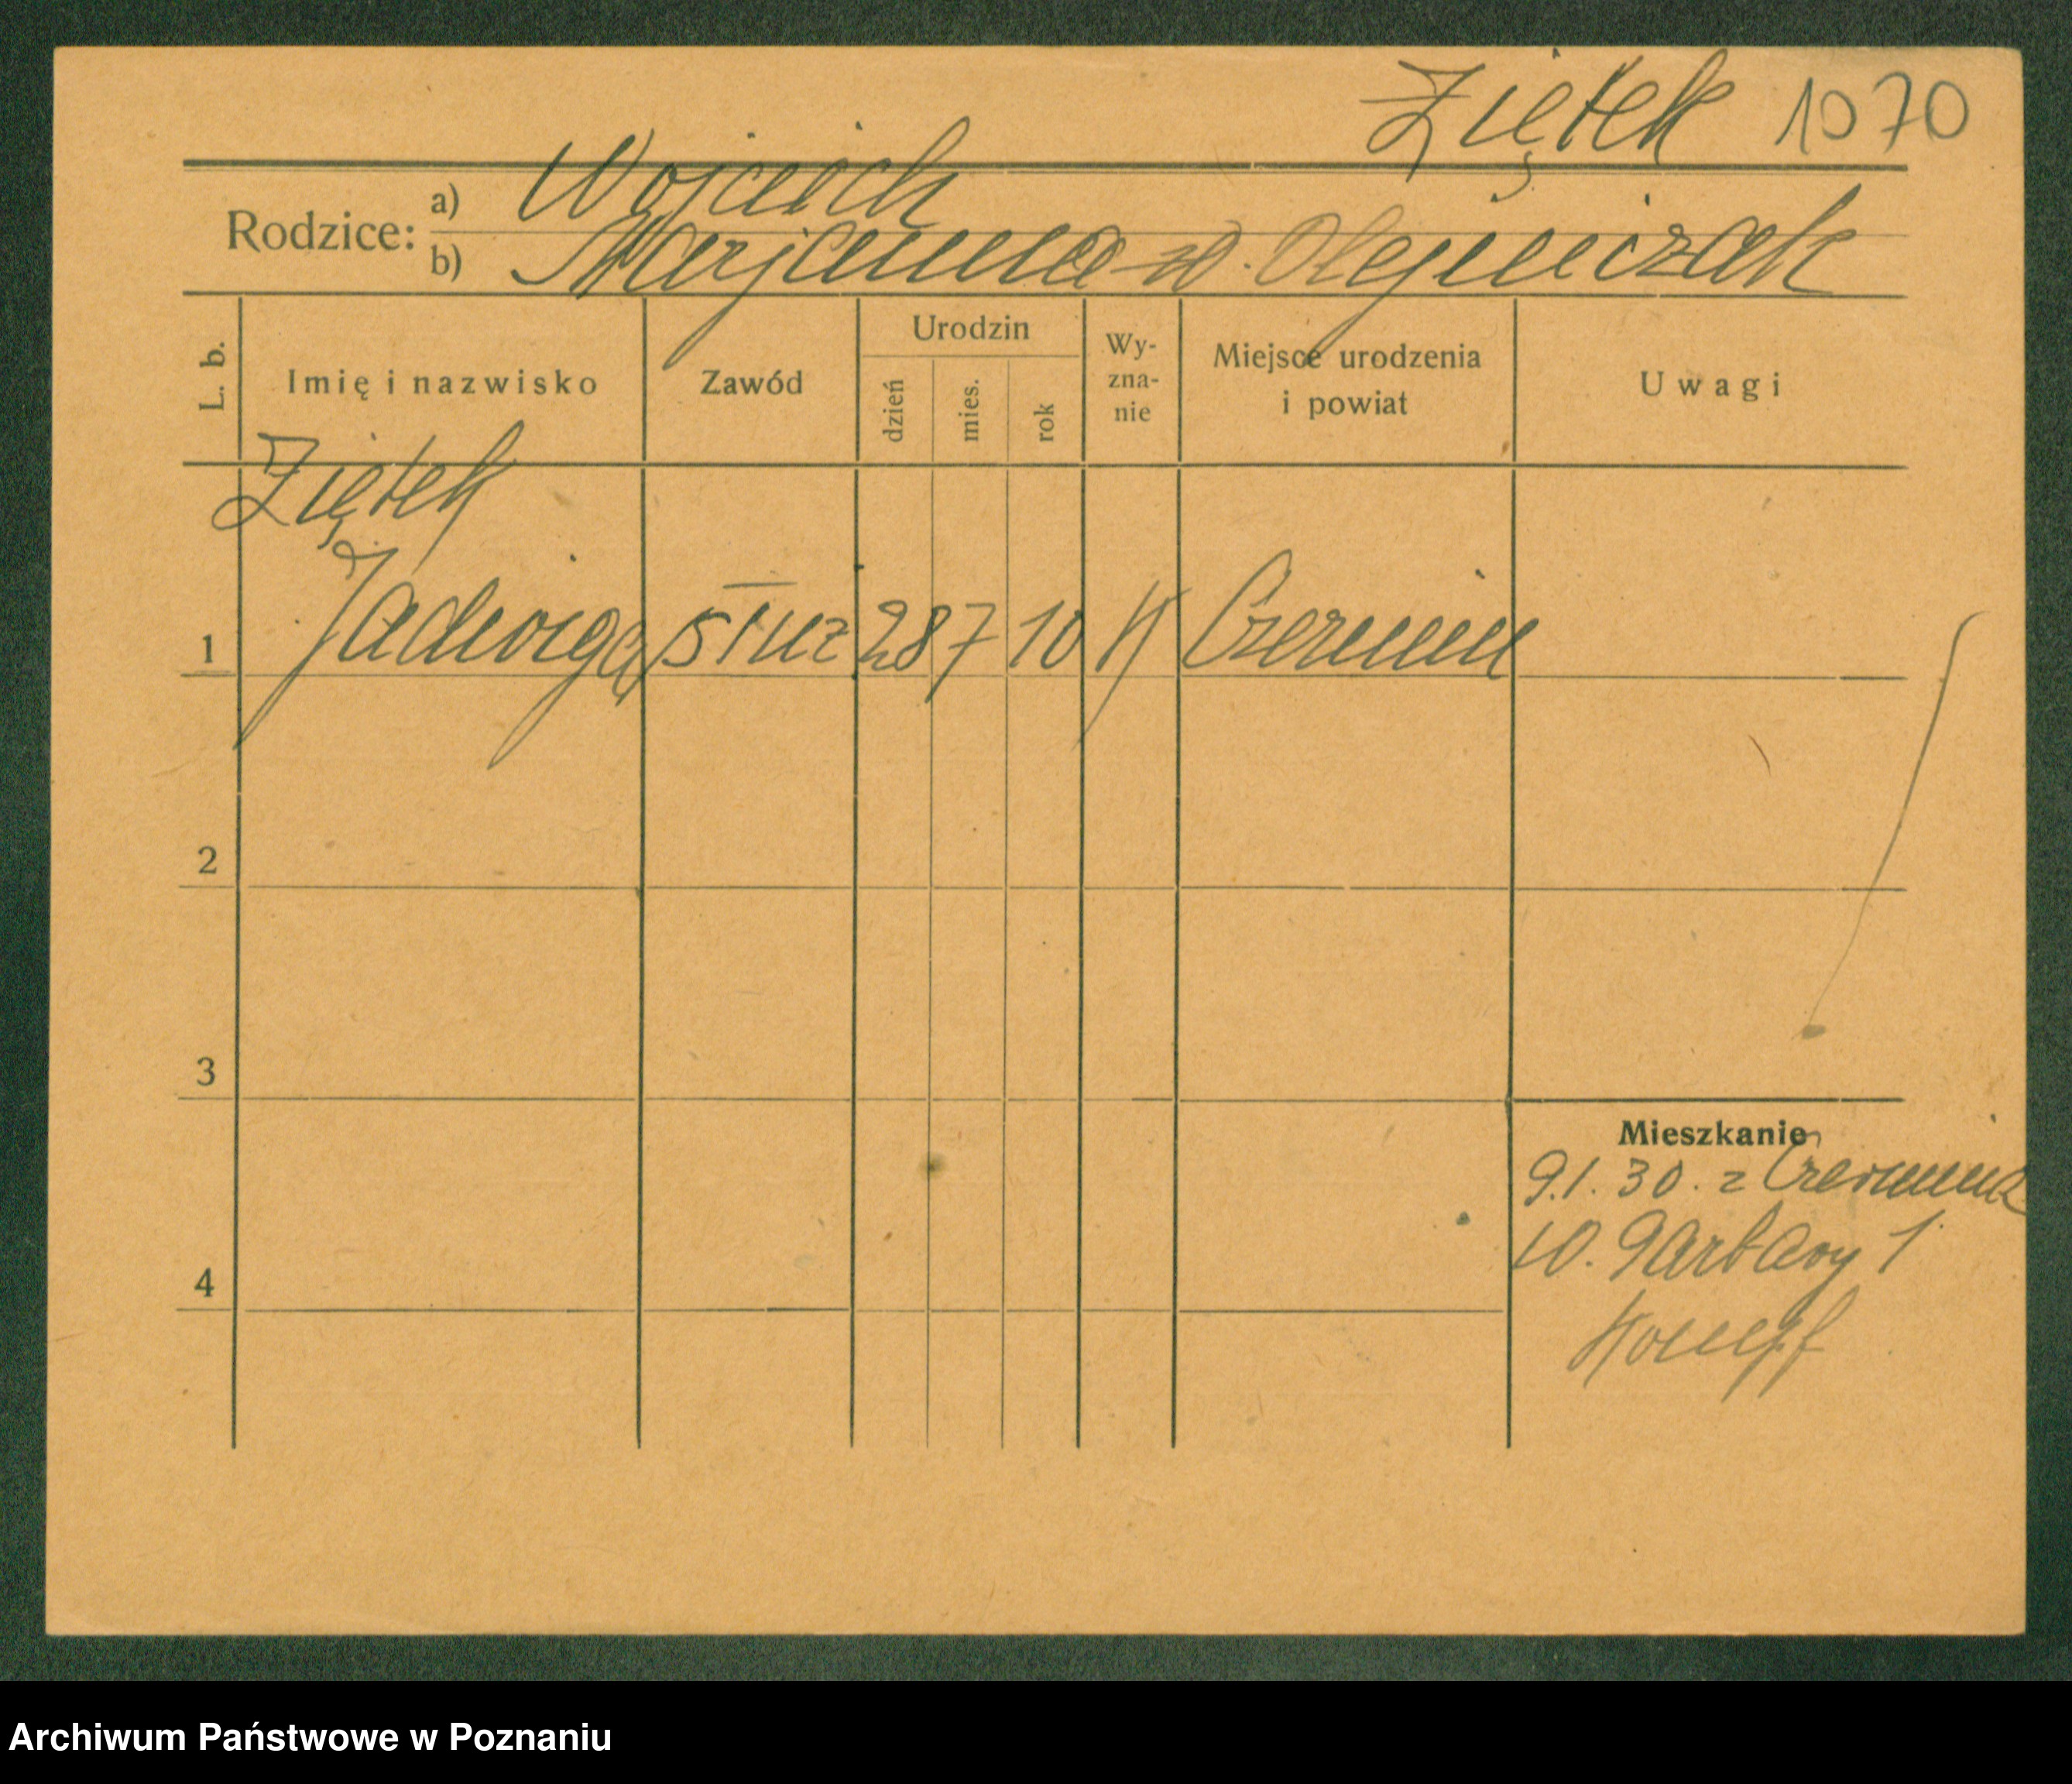 Ziętek 1070
Rodzice: a) Wojciech
b) Marjanna zd. Olejniczak
L. b. Imię i nazwisko Zawód Urodzin dzień mies. rok Wy-zna-nie Miejsce urodzenia i powiat Uwagi
Ziętek
1 Jadwiga służ 28 7 10 K Czermin
2
3
4
Mieszkanie
9.1.30. z Czermina
10. Garbary 1
Archiwum Państwowe w Poznaniu